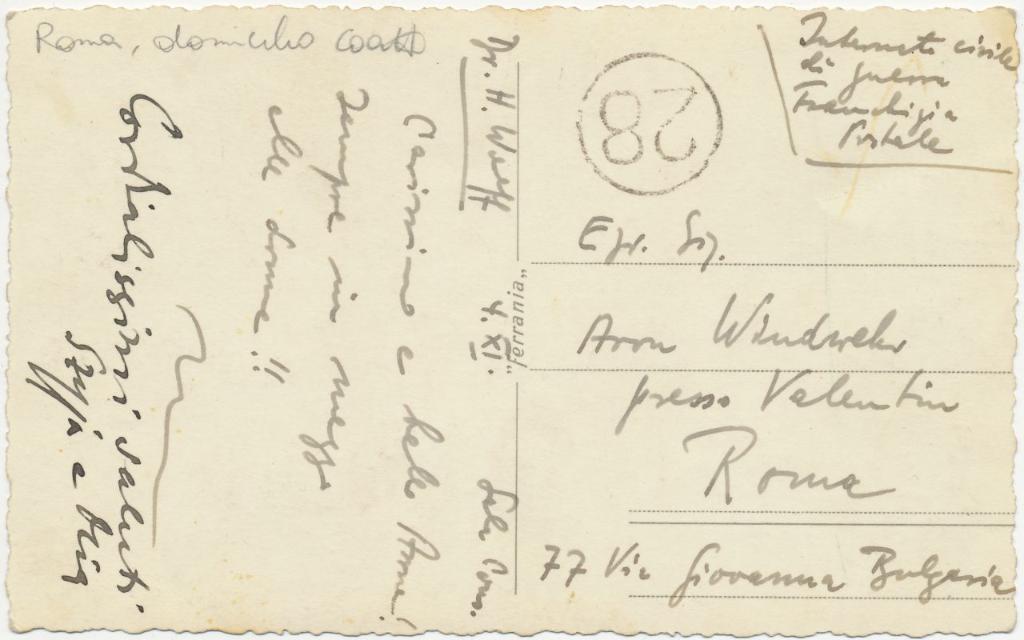 Roma, domicilio coatto
Dr. H. Wolff
4. XI.
Carissimo e bello Aron!
Sempre in mezzo
alle donne!!
Cordialissimi saluti
Szyja e
28
Internati civili
di guerra
Franchigia
Postale
Egr. Sig.
Aron Windwehr
presso Valentin
Roma
77 Via Giovanna Bulgaria
"ferrania"